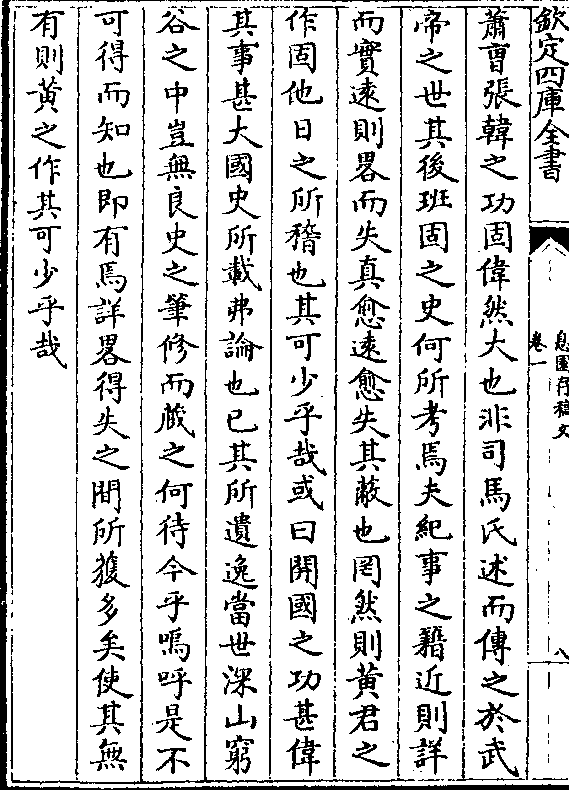 欽定四庫全書
息園存稿文
卷一
八
蕭曹張韓之功固偉然大也非司馬氏述而傳之於武
帝之世其後班固之史何所考焉夫紀事之籍近則詳
而實遠則畧而失真愈遠愈失其蔽也罔然則黄君之
作固他日之所稽也其可少乎哉或曰開國之功甚偉
其事甚大國史所載弗論也已其所遺逸當世深山窮
谷之中豈無良史之筆修而藏之何待今乎嗚呼是不
可得而知也即有焉詳畧得失之間所獲多矣使其無
有則黄之作其可少乎哉